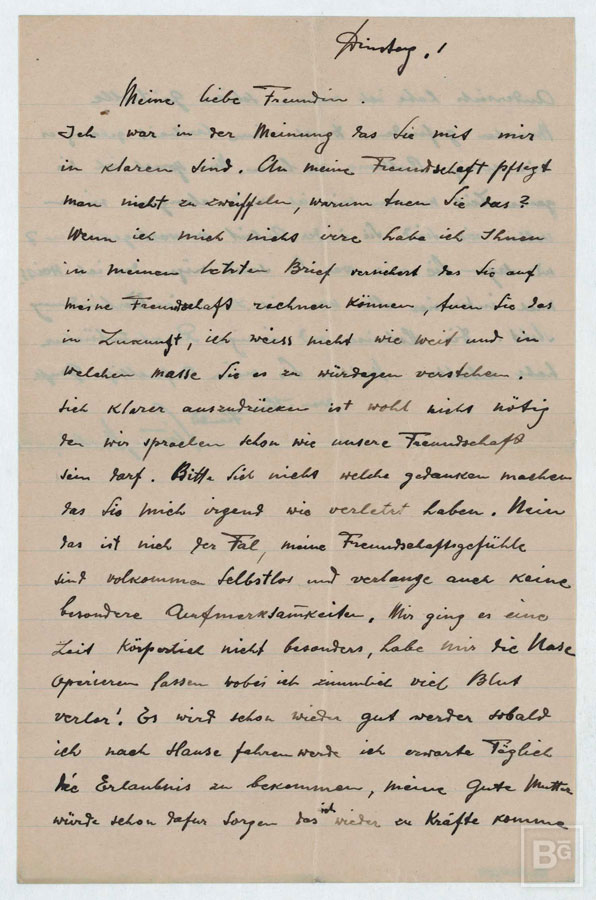 Dinstag. !
Meine liebe Freundin.
Ich war in der Meinung das Sie mit mir
in klaren sind. An meine Freundschaft pflegt
man nicht zu zweiffeln, warum tuen Sie das?
Wenn ich mich nicht irre habe ich Ihnen
in meinen letzten Brief versichert das Sie auf
meine Freundschaft rechnen können, tuen Sie das
in Zukunft, ich weiss nicht wie weit und in
welchen masse Sie es zu würdegen verstehen.
Sich klarer auszudrücken ist wohl nicht nötig
den wir sprachen schon wie unsere Freundschaft
sein darf. Bitte Sich nicht welche gedanken machen
das Sie mich irgend wie verletzt haben. Nein
das ist nich der Fal, meine Freundschaftsgefühle
sind volkommen Selbstlos und verlange auch keine
besondere Aufmerksamkeiten. Mir ging es eine
Zeit Körperlich nicht besonders, habe mir die Nase
operieren lassen wobei ich zimmlich viel Blut
verlor! Es wird schon wieder gut werder sobald
ich nach Hause fahren werde ich erwarte Täglich
die Erlaubnis zu bekommen, meine Gute Mutter
würde schon dafur Sorgen das ich wieder zu Kräfte komme
BG